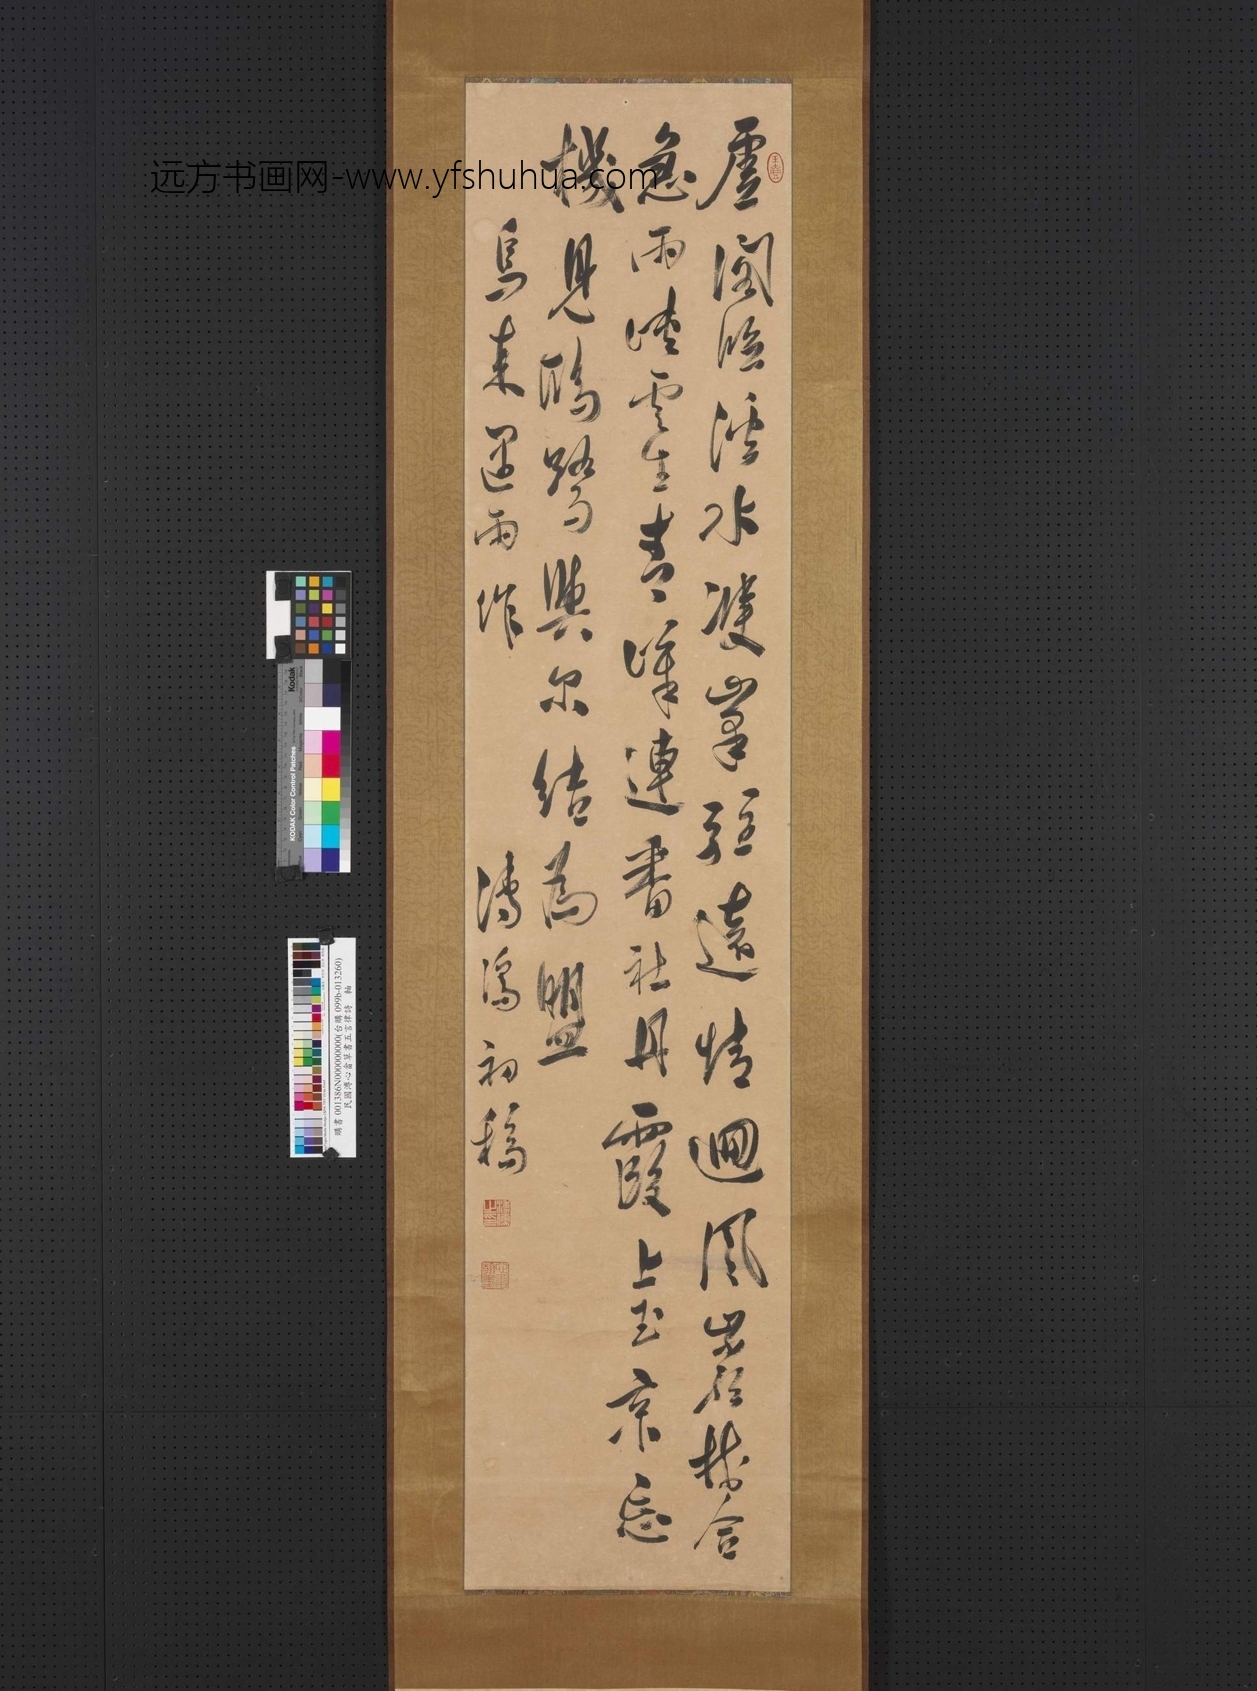 远方书画网-www.yfshuhua.com
虛閣臨溪水雙峯駐遠情迴風巖樹合
急雨雲生青嶂連番社丹霞上玉京忘
機見鷗鷺與尔結為盟
烏来遇雨作 溥儒初稿
Kodak
KODAK Color Control Patches
購書 001386N000000000(台購 099b-013260)
民國溥心畬草書五言律詩 軸